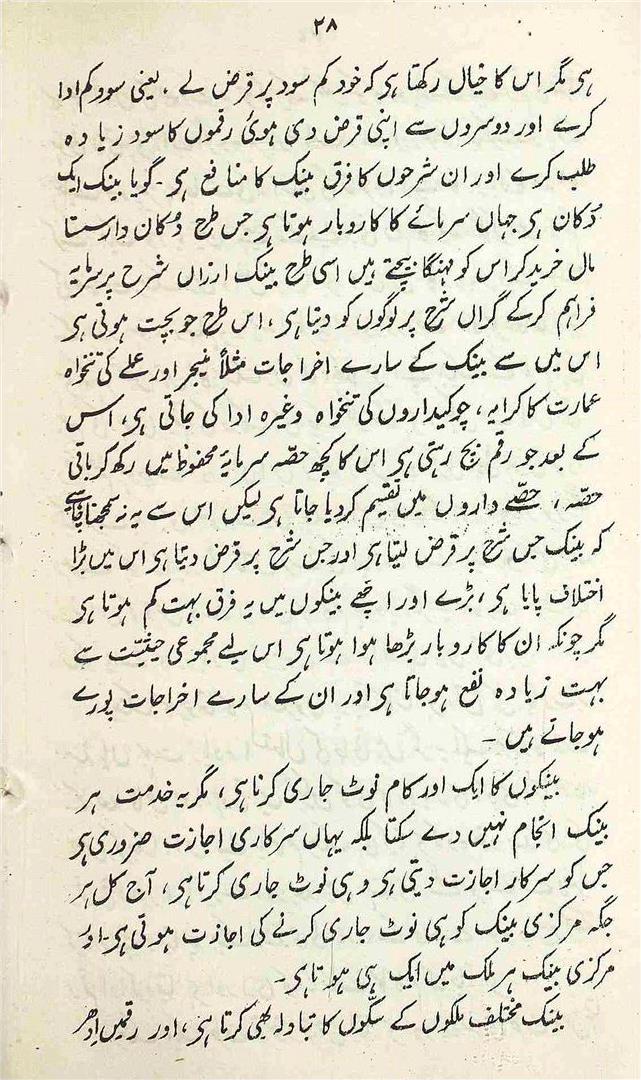 ۲۸
ہی مگر اس کا خیال رکھتا ہی کہ خود کم سود پر قرض لے ، یعنی سود کم ادا
کرے اور دوسروں سے اپنی قرض دی ہوئی رقموں کا سود زیادہ
طلب کرے اور ان شرحوں کا فرق بینک کا منافع ہی ۔ گویا بینک ایک
دُکان ہی جہاں سرمائے کا کاروبار ہوتا ہی جس طرح دُکان دار سستا
مال خرید کر اس کو مہنگا بیچتے ہیں اسی طرح بینک ارزاں شرح پر سرمایہ
فراہم کرکے گراں شرح پر لوگوں کو دیتا ہی ، اس طرح جو بچت ہوتی ہی
اس میں سے بینک کے سارے اخراجات مثلاً منیجر اور عملے کی تنخواہ
عمارت کا کرایہ ، چوکیداروں کی تنخواہ وغیرہ ادا کی جاتی ہی ، اس
کے بعد جو رقم بچ رہتی ہی اس کا کچھ حصّہ سرمایۂ محفوظ میں رکھ کر باقی
حصّہ ، حصّے داروں میں تقسیم کردیا جاتا ہی لیکن اس سے یہ نہ سمجھنا چاہیے
کہ بینک جس شرح پر قرض لیتا ہی اور جس شرح پر قرض دیتا ہی اس میں بڑا
اختلاف پایا ہی ، بڑے اور اچھے بینکوں میں یہ فرق بہت کم ہوتا ہی
مگر چونکہ ان کا کاروبار بڑھا ہوا ہوتا ہی اس لیے مجموعی حیثیّت سے
بہت زیادہ نفع ہوجاتا ہی اور ان کے سارے اخراجات پورے
ہوجاتے ہیں ۔
بینکوں کا ایک اور کام نوٹ جاری کرنا ہی ، مگر یہ خدمت ہر
بینک انجام نہیں دے سکتا بلکہ یہاں سرکاری اجازت ضروری ہی
جس کو سرکار اجازت دیتی ہی وہی نوٹ جاری کرتا ہی ، آج کل ہر
جگہ مرکزی بینک کو ہی نوٹ جاری کرنے کی اجازت ہوتی ہی ۔ اور
مرکزی بینک ہر ملک میں ایک ہی ہوتا ہی ۔
بینک مختلف ملکوں کے سکّوں کا تبادلہ بھی کرتا ہی ، اور رقمیں اِدھر